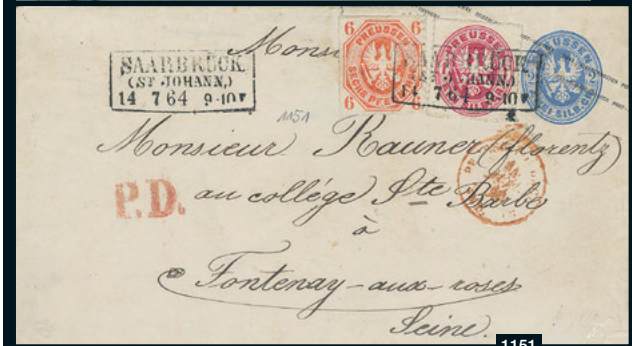 Monsi
SAARBRÜCK
(ST JOHANN,)
14 7 64 9-10
6 PREUSSEN 6
6 SECHS PFE
PREUSSEN
SAARBRÜCK
(ST JOHANN)
14 7 64 9-10
PREUSSEN
2 2
ZWEI SILB.GR.
1151
Monsieur Rauner (florentz)
P.D.
au collège Ste Barbe
à
Fontenay-aux-roses
Seine.
1151